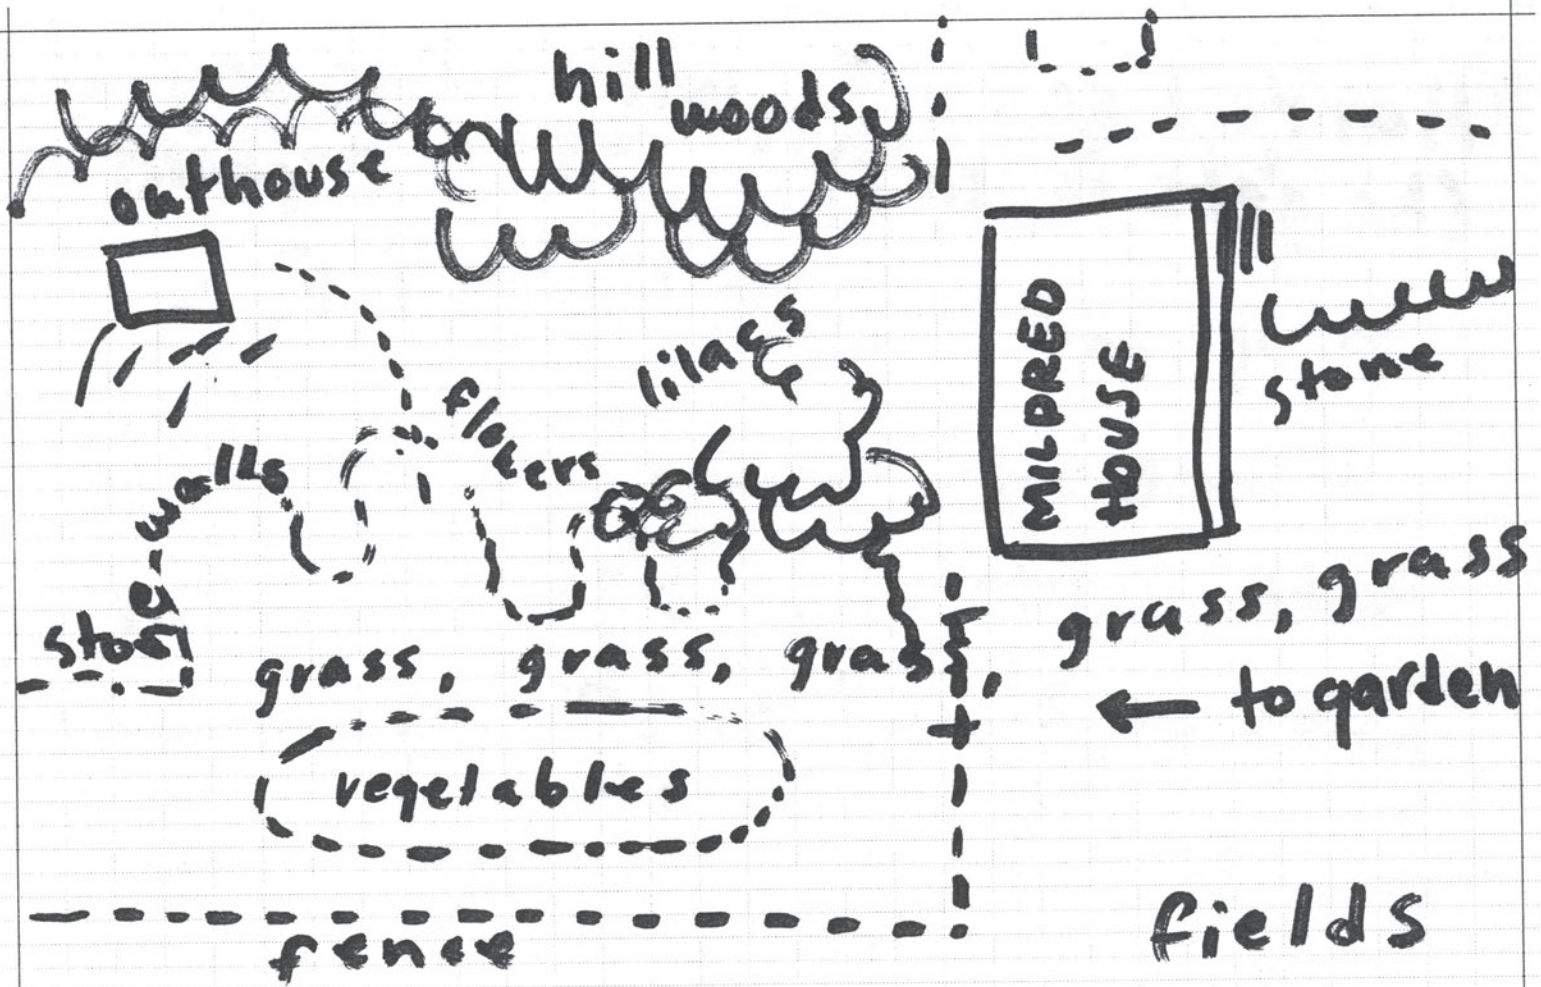 hill
woods
outhouse
lilacs
MILDRED
HOUSE
stone
flowers
stone walls
grass, grass, grass, grass, grass
← to garden
vegetables
fence
fields